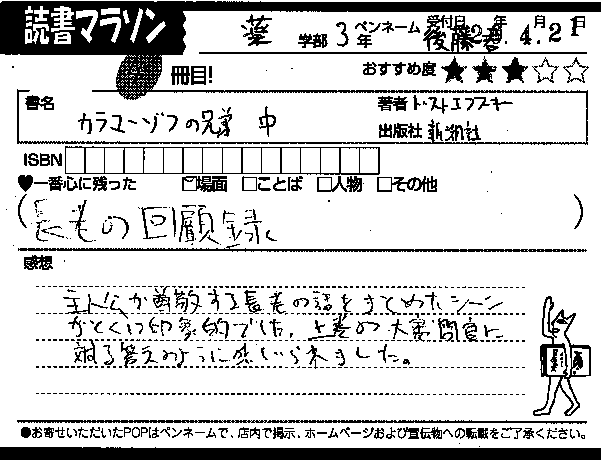 読書マラソン
薬 学部 3年 ペンネーム 後藤 受付日 年 4月21日
冊目!
おすすめ度 ★★★☆☆
書名 カラマーゾフの兄弟 中
著者 ドストエフスキー
出版社 新潮社
ISBN
♥一番心に残った ☑場面 □ことば □人物 □その他
(長老の回顧録)
感想
主人公が尊敬する長老の話をまとめたシーン
がとくに印象的でした。上巻の大審問官に
対する答えのように感じられました。
●お寄せいただいたPOPはペンネームで、店内で掲示、ホームページおよび宣伝物への転載をご了承ください。